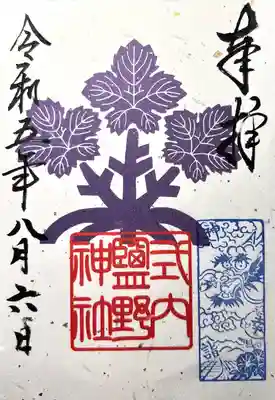 奉拝
式内
鹽野
神社
令和五年八月六日